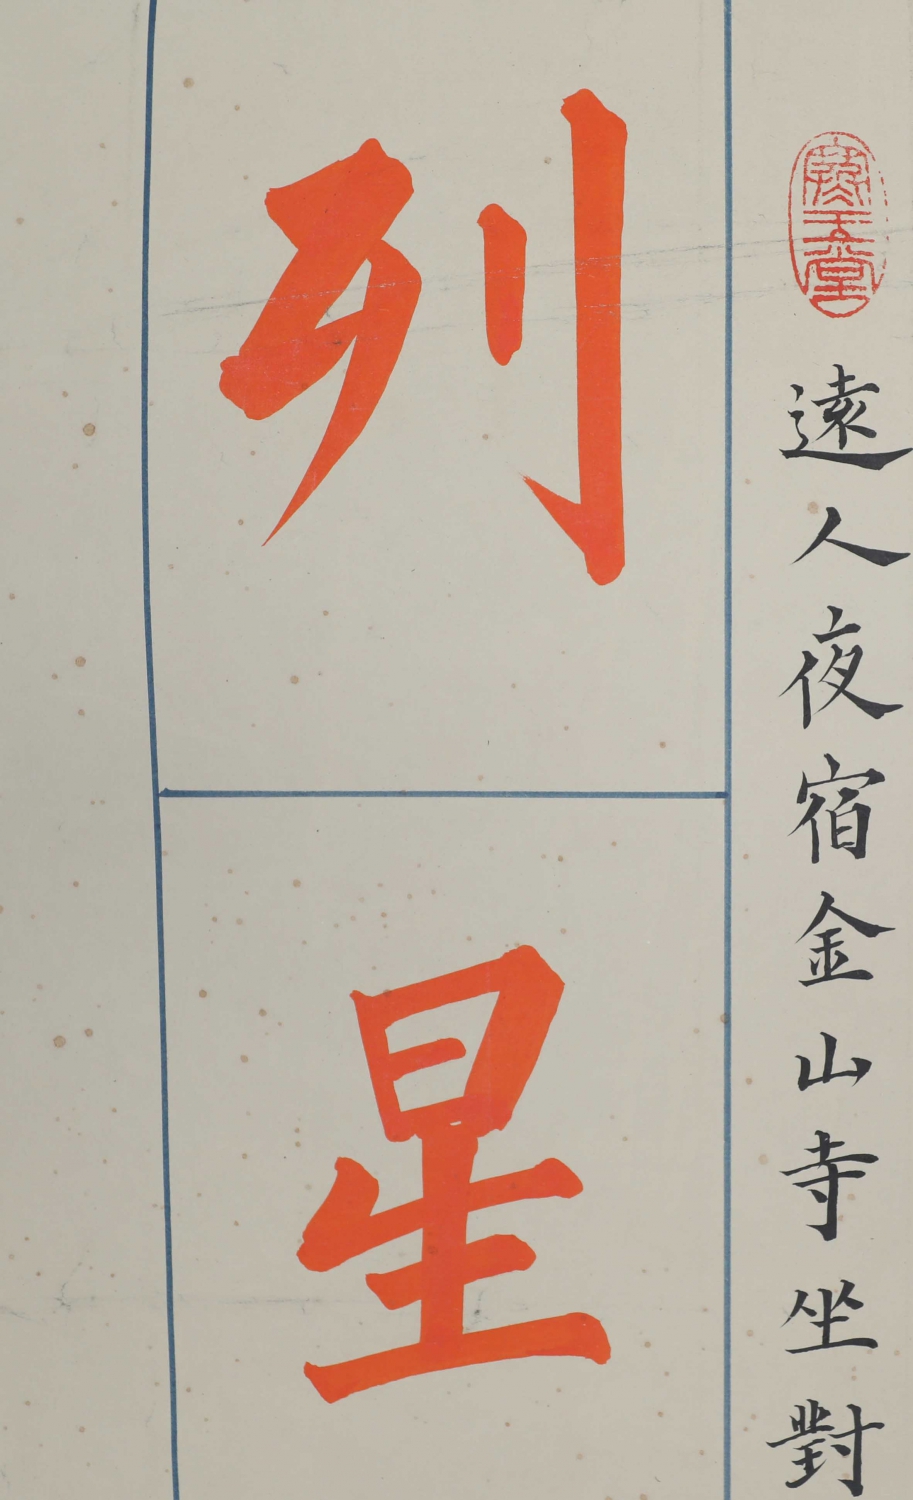 遠人夜宿金山寺坐對
列星